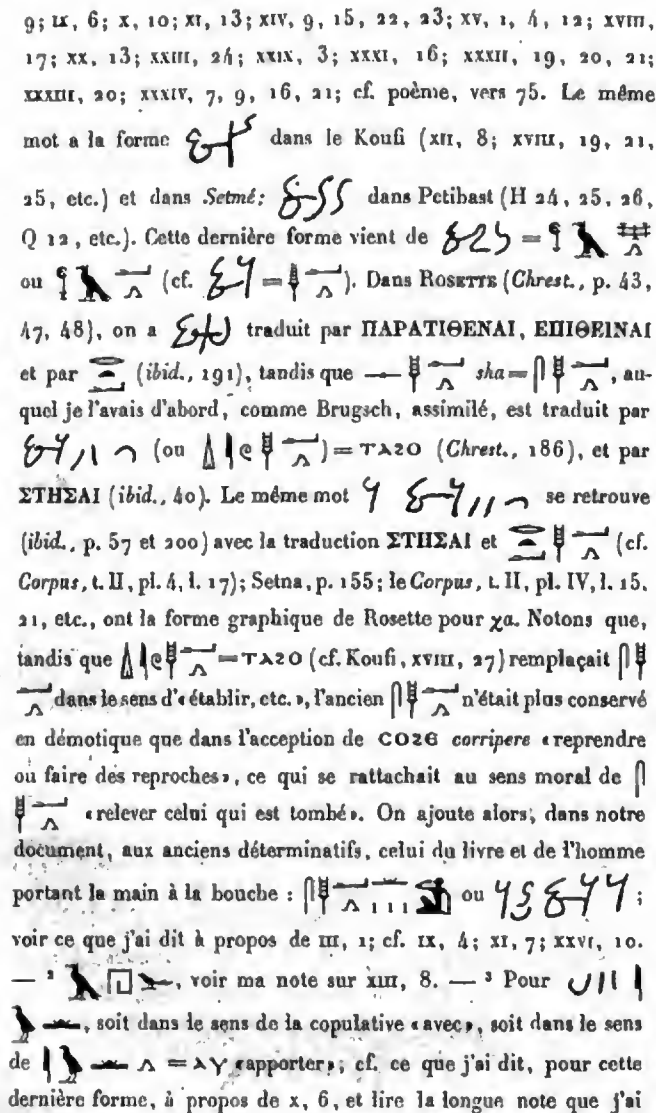 9; IX, 6; X, 10; XI, 13; XIV, 9, 15, 22, 23; XV, 1, 4, 12; XVIII,
17; XX, 13; XXIII, 24; XXIX, 3; XXXI, 16; XXXII, 19, 20, 21;
XXXIII, 20; XXXIV, 7, 9, 16, 21; cf. poème, vers 75. Le même
mot a la forme dans le Koufi (XII, 8; XVIII, 19, 21,
25, etc.) et dans Setmé: dans Petibast (H 24, 25, 26,
Q 12, etc.). Cette dernière forme vient de =
ou (cf. = ). Dans ROSETTE (Chrest., p. 43,
47, 48), on a traduit par ΠΑΡΑΤΙΘΕΝΑΙ, ΕΠΙΘΕΙΝΑΙ
et par (ibid., 191), tandis que — sha= , au-
quel je l'avais d'abord, comme Brugsch, assimilé, est traduit par
(ou ) = ⲧⲁϩⲟ (Chrest., 186), et par
ΣΤΗΣΑΙ (ibid., 40). Le même mot se retrouve
(ibid., p. 57 et 200) avec la traduction ΣΤΗΣΑΙ et (cf.
Corpus, t. II, pl. 4, l. 17); Setna, p. 155; le Corpus, t. II, pl. IV, l. 15,
21, etc., ont la forme graphique de Rosette pour χα. Notons que,
tandis que =ⲧⲁϩⲟ (cf. Koufi, XVIII, 27) remplaçait
dans le sens d'«établir, etc.», l'ancien n'était plus conservé
en démotique que dans l'acception de ⲥⲟϩⲉ corripere «reprendre
ou faire des reproches», ce qui se rattachait au sens moral de
«relever celui qui est tombé». On ajoute alors, dans notre
document, aux anciens déterminatifs, celui du livre et de l'homme
portant la main à la bouche : ou ;
voir ce que j'ai dit à propos de III, 1; cf. IX, 4; XI, 7; XXVI, 10.
— ² , voir ma note sur XIII, 8. — ³ Pour
, soit dans le sens de la copulative «avec», soit dans le sens
de = ⲁⲩ «apporter»; cf. ce que j'ai dit, pour cette
dernière forme, à propos de X, 6, et lire la longue note que j'ai